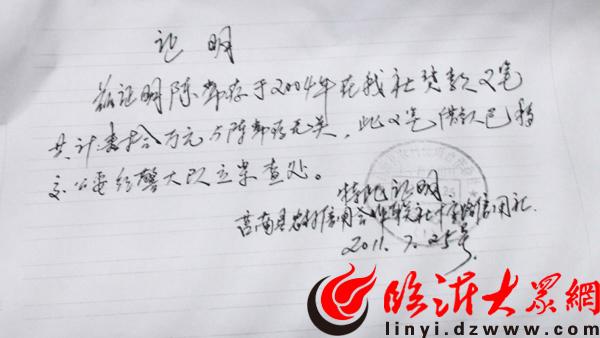 证明
兹证明陈常存于2004年在我社贷款又笔
共计叁拾万元与陈常存无关,此又笔借款已移
交公安经警大队立案查处。
特此证明
莒南县农村信用合作联社十字路信用社.
2011.7.25号
临沂大众網
linyi.dzwww.com